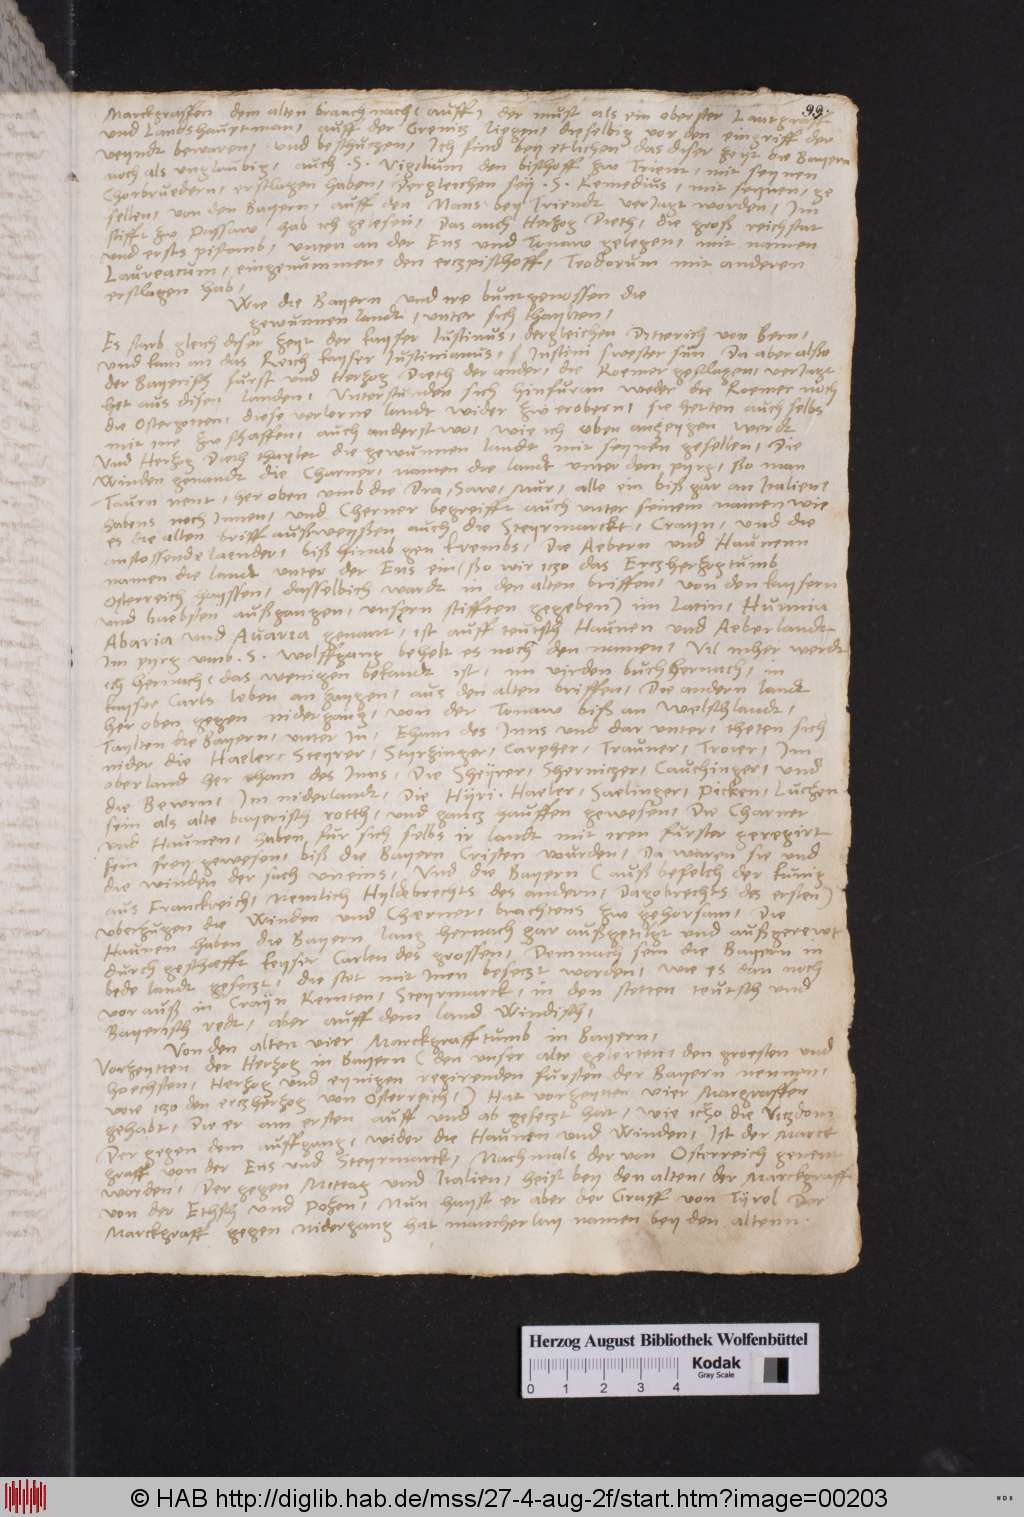 99
Marckgraffen dem alten brauch nach (auff) der must als ein oberster Lantgraff
und Landshauptman, auff der Grenicz ligen, dieselbig vor den eingriff der
veyndt bewaren, und beschuczen, Ich find bey etlichen das diser zeyt die Bayern
noch als unglaubig, auch .S. Vigilium den bischoff zw Trient, mit seynen
Chorbruedern, erschlagen haben, Dergleichen sey .S. Remedius, mit seynen, ge
sellen, von den Bayern, auff den Nons bey Triendt verjagt worden, Im
stifft zw Passaw hab ich gelesen, Das auch Herzog Dieth, die groß reichstat
und ersts pistomb, unten an der Ens und Tonaw gelegen, mit namen
Laureacum, eingenummen, den erczpischoff, Teodorum mit anderen
erschlagen hab,
Wie die Bayern und ire buntgenossen die
gewunnen landt, unter sich thaylten,
Es starb gleich diser zeyt der kayser Iustinus, dergleichen Ditterich von Bern,
und kam an das Reich kayser Iustinianus, Justini swester sun, Da aber alßo
der Bayerisch furst und Herzog Dieth der ander, die Roemer geschlagen, verjagt
het aus disen landen, Unterstunden sich hinfuran weder die Roemer noch
die Ostergotten, diese verlorne landt wider zw erobern, sie hetten auch selbs
mit ine zw schaffen, auch anderstwo, wie ich oben anzeygen werdt
Und Herzog Dieth thaylet die gewunnen landt mit seynen gesellen, Die
Winden genandt die Charner, namen die landt unter dem pyrg, ßo man
Taurn nent, her oben umb die Dra, Saw, Mur, alle ein biß gar an Italien,
habens noch Innen, und Cherner begreifft auch unter seinem namen wie
es die alten briff außweyßen auch die Steyrmarckt, Crayn, und die
anstossende laender, biß hinab gen krembs, Die Aebern und Haunenn
namen die landt unter der Ens ein (ßo wir iczo das Erczherzogtumb
Osterreich hayssen, dasselbich wardt in den alten briffen, von den kaysern
und baebsten außgangen, unsern stifften gegeben) im Latein, Hunnia
Abaria und Auaria genant, ist auff teutsch Haunen und Aeberlandt
Im pyrg umb .S. Wolffgang behelt es noch den namen, Vil mher werdt
ich hernach (das wenigen bekandt ist, im virden buch hernach, in
kayser Carls leben anzaygen, aus den alten briffen, Die andern landt
her oben gegen nidergang, von der Tonaw biß an Welschlandt,
Taylten die Bayern, unter In, Ehum des Inns und dar unter, theten sich
nider die Haeler, Steyrer, Styrzinger, Carpher, Trauner, Trover, Im
oberland her tham des Inns, Die Sheyrer, Shernitzer, Cauchinger, und
die Bewrn, Im niderlandt, Die Hyri, Haeler, Saelinger, Picken, Luchen
sein als alte bayerisch rotth, und gancz hauffen gewesen, Die Charner
und Haunen, haben fur sich selbs ir landt mit iren furster geregirt
sein frey gewesen, biß die Bayern Cristen wurden, Da waren sie und
die winden der sach uneins, Und die Bayern (auß befelch der kunig
aus Franckreich, nemlich Hyldebrechts des andern, Dagobrechts des ersten)
uberzugen die Winden und Cherner, brachtens zw gehorsam, Die
Haunen haben die Bayern lang hernach gar außgetilgt und außgerewt
durch geschaefft keyser Carlen des grossen, Demnach sein die Bayern in
bede landt gesetzt, die stet mit Inen besetzt worden, wie es dan noch
vorauß in Crayn Kernten, Steyrmarck, in den stetten teutsch und
Bayerisch redt, aber auff dem land Windisch,
Von den alten vier Marckgrafftumb in Bayern,
Vorzeytten der Herzog in Bayern (den unser alte gelerten, den groesten und
hoechsten, Herzog und eynigen regirenden fursten der Bayern nennen,
wie iczo den erczherzog von Osterreich,) Hat vorzeyten vier Margraffen
gehabt, Die er am ersten auff und ab gesetzt hat, wie iczo die Viczdom
Der gegen dem auffgang, wider die Haunen und Winden, Ist der Marck
graff von der Ens und Steyrmarck, Nachmals der von Osterreich genent
worden, Der gegen Mittag und Italien, heist bey den alten, der Marckgraff
von der Ethsch und Pozen, Nun hayst er aber der Graff von Tyrol Der
Marckgraff gegen nidergang hat mancherlay namen bey den altenn.
Herzog August Bibliothek Wolfenbüttel
0 1 2 3 4
Kodak
Gray Scale
© HAB http://diglib.hab.de/mss/27-4-aug-2f/start.htm?image=00203